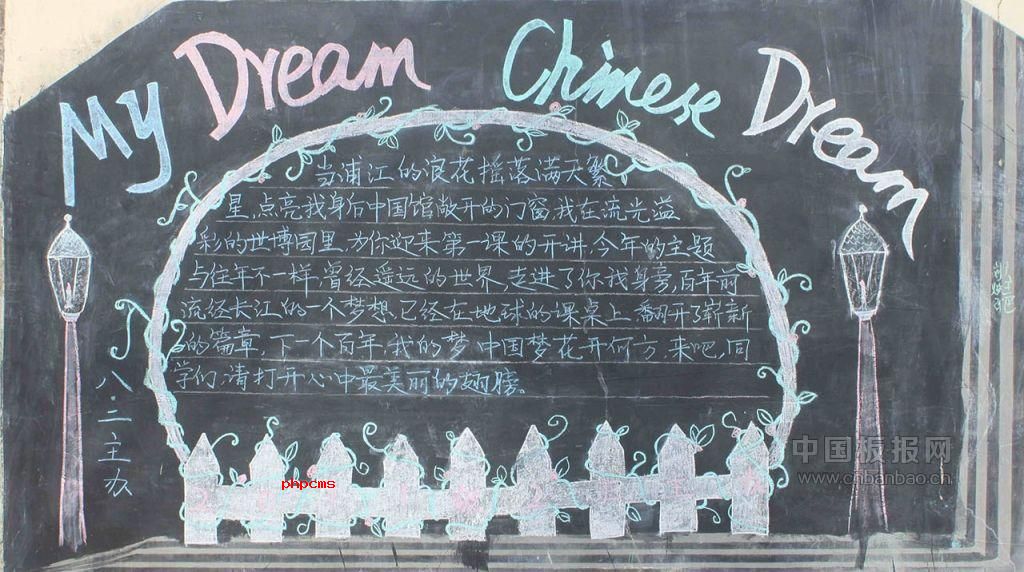 My Dream Chinese Dream
当浦江的浪花摇落满天繁
星,点亮我身后中国馆敞开的门窗,我在流光溢
彩的世博园里,为你迎来第一课的开讲,今年的主题
与往年不一样,曾经遥远的世界,走进了你我身旁,百年前
流经长江的一个梦想,已经在地球的课桌上翻开了崭新
的篇章,下一个百年,我的梦,中国梦花开何方,来吧,同
学们,请打开心中最美丽的翅膀。
八.二主办
phpcms
中国板报网
www.cnbanbao.cn